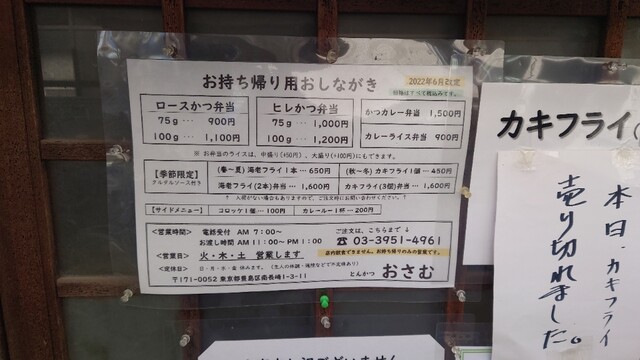 お持ち帰り用おしながき
2022年6月改定
価格はすべて税込みです。
ロースかつ弁当
75g … 900円
100g … 1,100円
ヒレかつ弁当
75g … 1,000円
100g … 1,200円
かつカレー弁当 1,500円
カレーライス弁当 900円
※ お弁当のライスは、中盛り(+50円)、大盛り(+100円)にもできます。
【季節限定】
タルタルソース付き
(春〜夏) 海老フライ1本 … 650円
(秋〜冬) カキフライ1個 … 450円
海老フライ(2本)弁当 … 1,600円
カキフライ(3個)弁当 … 1,600円
↑ 入荷がない場合もありますので、ご注文時にお問い合わせください
【サイドメニュー】 コロッケ1個 … 100円 カレールー1杯 … 200円
<営業時間> 電話受付 AM 7:00〜
お渡し時間 AM 11:00〜PM 1:00
ご注文は、こちらまで↓
☎ 03-3951-4961
<営業日> 火・木・土 営業します
店内飲食できません。お持ち帰りのみの営業です。
<定休日> 日・月・水・金 休みます。
〒171-0052 東京都豊島区南長崎1-3-11
とんかつ おさむ
カキフライ(
本日、カキフライ
売り切れました。